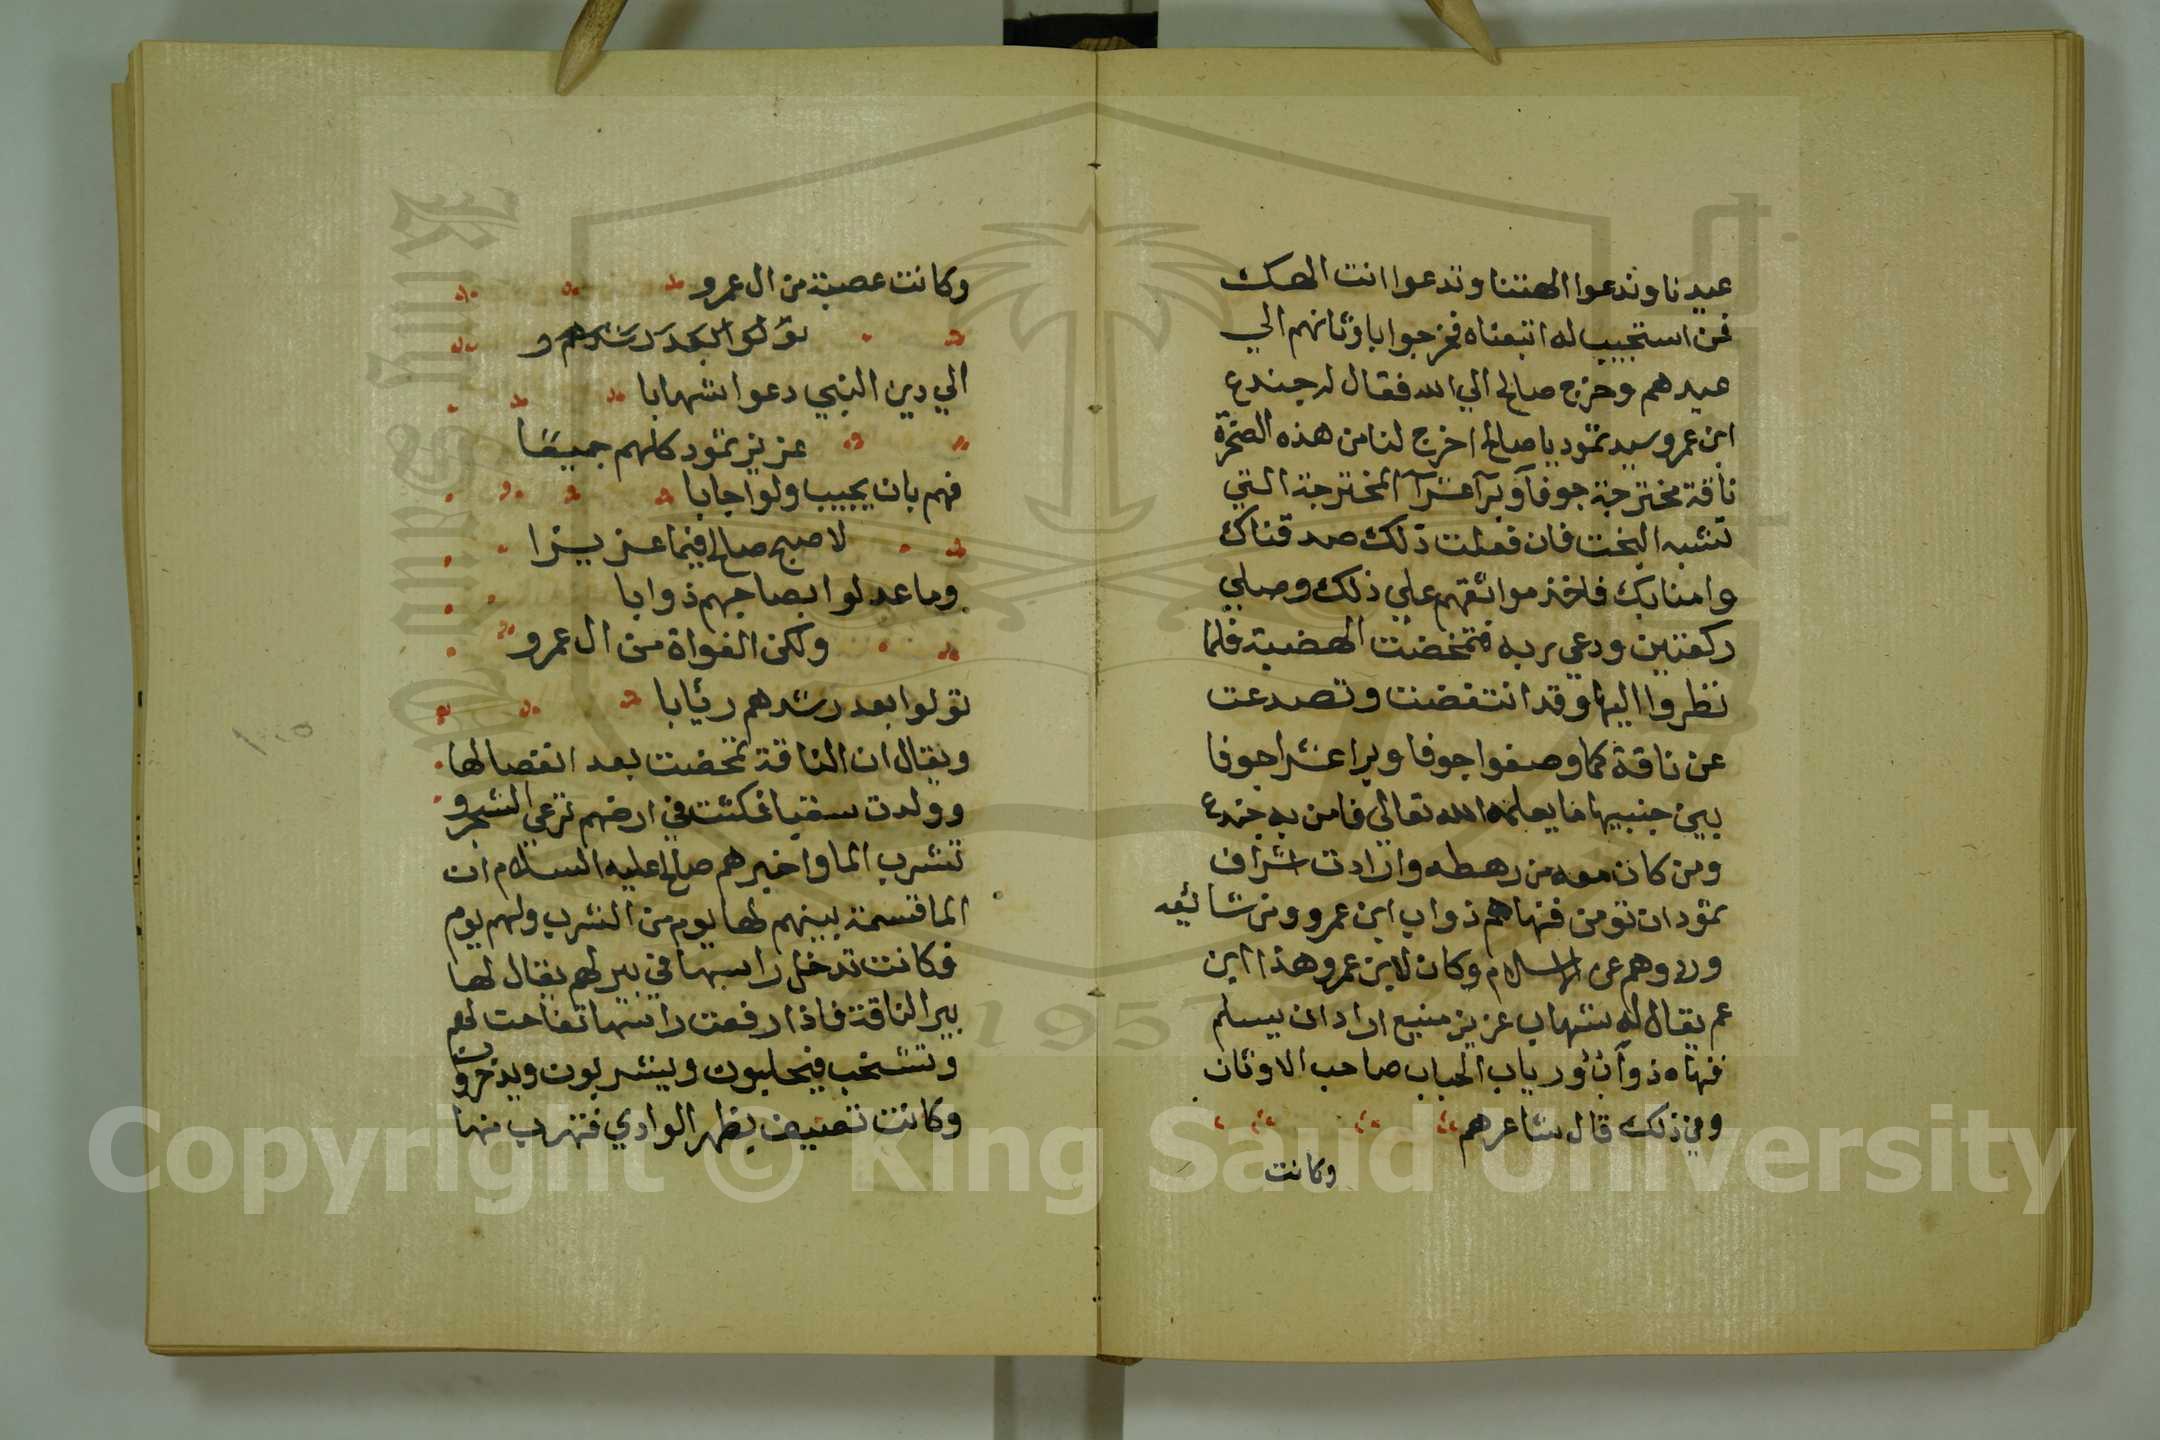 عيدنا وتدعوا الهتنا وتدعوا انت الهك
فمن استجيب له اتبعناه فخرجوا باوثانهم الي
عيدهم وخرج صالح الي الله فقال له جندع
ابن عمرو سيد ثمود يا صالح اخرج لنا من هذه الصخرة
ناقة مخترجة جوفآ وبرآ عشرآ المخترجة التي
تشبه البخت فان فعلت ذلك صدقناك
وامنا بك فاخذ مواثقهم علي ذلك وصلي
ركعتين ودعي ربه فتمخضت الهضبة فلما
نظروا اليها وقد انتفضت وتصدعت
عن ناقة كما وصفوا جوفا وبرا عشرا جوفا
بين جنبيها ما يعلمه الله تعالي فامن به جندع
ومن كان معه من رهطه وارادت اشراف
ثمود ان تومن فنهاهم ذواب ابن عمرو ومن شائعه
وردوهم عن الاسلام وكان لابن عمرو هذا ابن
عم يقال له شهاب عزيز منيع اراد ان يسلم
فنهاه ذوآب ورياب الحباب صاحب الاوثان
وفي ذلك قال شاعرهم
وكانت
وكانت عصبة من ال عمرو
تولوا بعد رشدهم و
الي دين النبي دعوا شهابا
عزيز ثمود كلهم جميعا
فهم بان يجيب ولو اجابا
لاصبح صالح فينا عزيزا
وما عدلوا بصاحبهم ذوابا
ولكن الغواة من ال عمرو
تولوا بعد رشدهم ريابا
ويقال ان الناقة تمخضت بعد انفصالها
وولدت سقبا فمكثت في ارضهم ترعي الشجر و
تشرب الما واخبرهم صالح عليه السلام ان
الما قسمة بينهم لها يوم من الشرب ولهم يوم
فكانت تدخل راسها في بير لهم يقال لها
بير الناقة فاذا رفعت راسها تفاحت لهم
وتشخب فيحلبون ويشربون ويدخرون
وكانت تصيف بظهر الوادي فتهرب منها
King Saud University
1957
Copyright © King Saud University